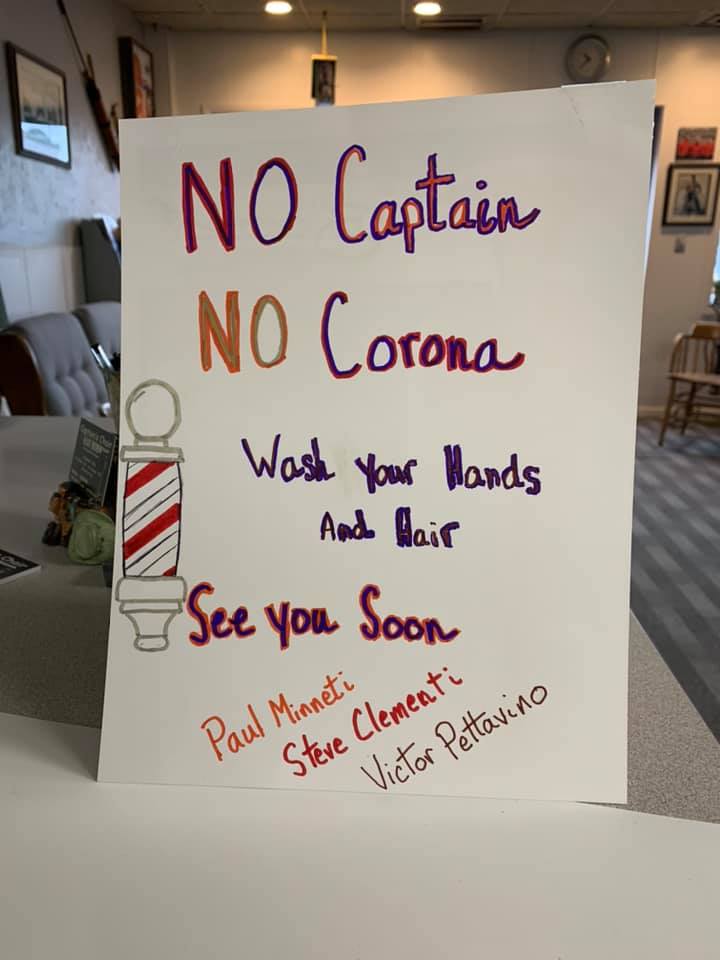 NO Captain
NO Corona
Wash Your Hands
And Hair
See you Soon
Paul Minneti
Steve Clementi
Victor Pettavino